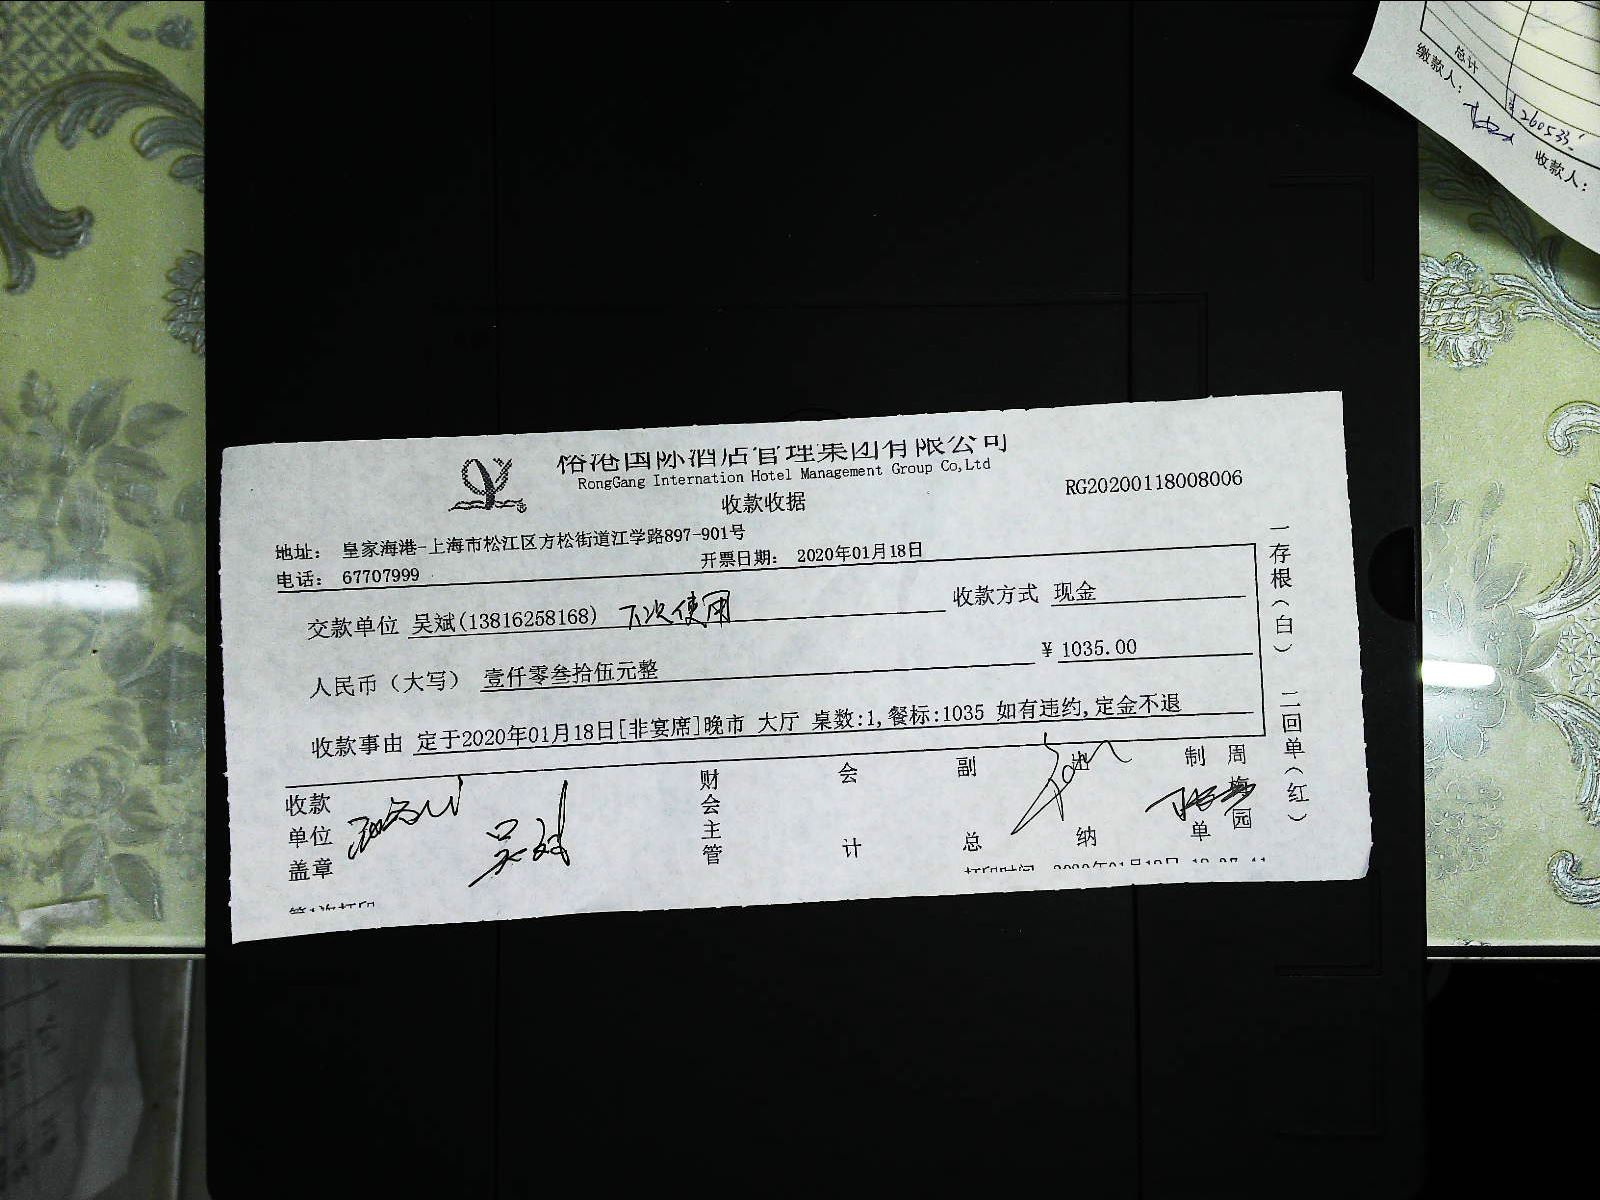 总计
¥260533.
缴款人：
收款人：
裕港国际酒店管理集团有限公司
RongGang Internation Hotel Management Group Co,Ltd
收款收据
RG20200118008006
地址： 皇家海港-上海市松江区方松街道江学路897-901号
电话： 67707999
开票日期： 2020年01月18日
交款单位 吴斌(13816258168) 下次使用 收款方式 现金
人民币（大写） 壹仟零叁拾伍元整 ¥ 1035.00
收款事由 定于2020年01月18日[非宴席]晚市 大厅 桌数:1,餐标:1035 如有违约,定金不退
收款单位盖章 吴斌 财会主管 会计 副总 出纳 制单 周梅园
一存根（白） 二回单（红）
第1次打印
打印时间